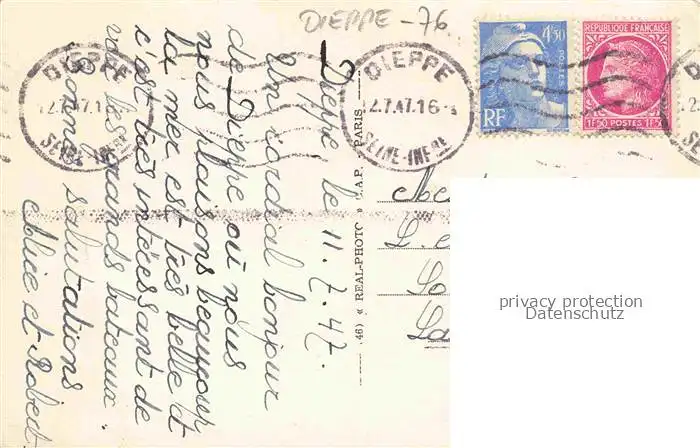 DIEPPE - 76
DIEPPE
SEINE-INFRE
DIEPPE
12.7.47.16
SEINE-INFRE
4f50
POSTES
RF
RÉPUBLIQUE FRANÇAISE
1F50 POSTES 1F50
Dieppe le 11.7.47.
Un cordial bonjour
de Dieppe où nous
nous plaisons beaucoup
la mer est très belle et
c'est très intéressant de
voir les grands bateaux.
Bonnes salutations
Alice et Robert
46) « REAL-PHOTO » C.A.P. PARIS
privacy protection
Datenschutz